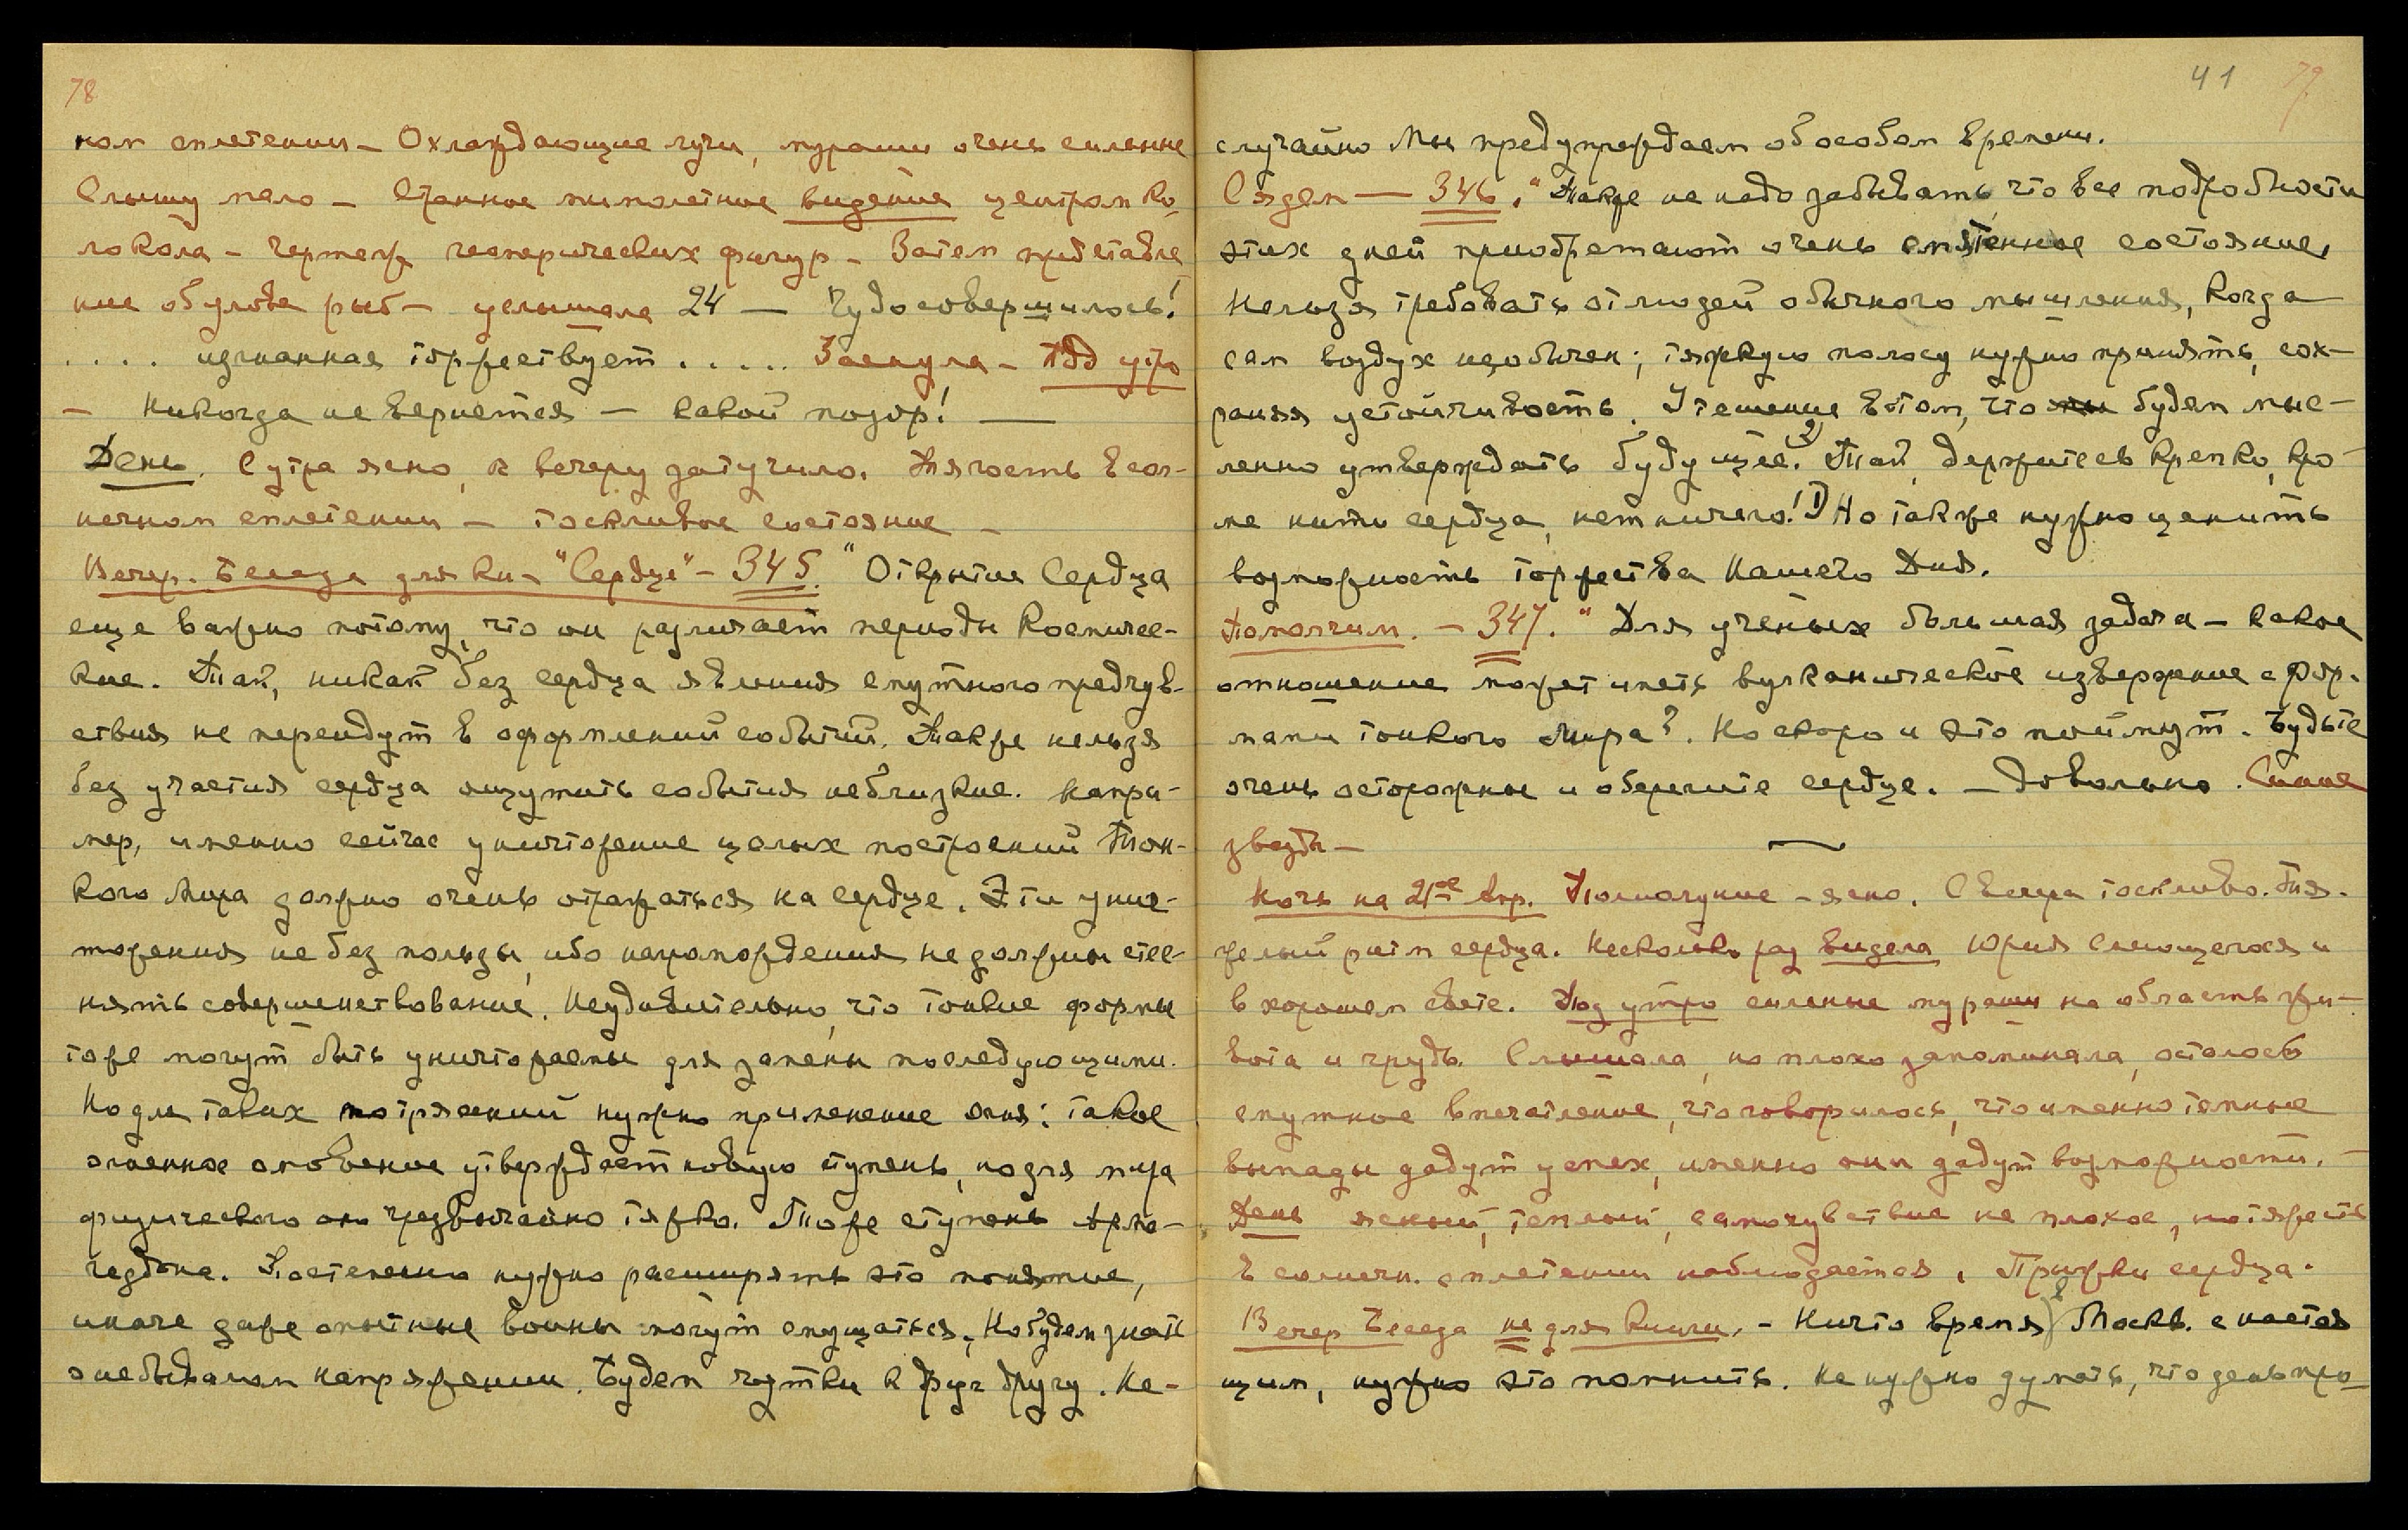 78
ном сплетении – Охлаждающие лучи, мураши очень сильные
Слышу мало – Странное мимолетное видение центром ко-
локола – чертеж геометрических фигур – Затем представле-
ние об улове рыб – услышала 24 — Чудо совершилось!
. . . . изгнанная торжествует . . . . . Заснула – Под утро
– Никогда не вернется — какой позор! —
День. С утра ясно, к вечеру затучило. Тягость в сол-
нечном сплетении – тоскливое состояние –
Вечер. Беседа для кн. "Сердце" – 345. "Открытие Сердца
еще важно потому, что он различает периоды Космичес-
кие. Так, никак без сердца явления смутного предчув-
ствия не перейдут в оформлений событий. Также нельзя
без участия сердца ощутить события неблизкие. Напри-
мер, именно сейчас уничтожение целых построений Тон-
кого Мира должно очень отражаться на сердце. Эти унич-
тожения не без пользы, ибо нагромождения не должны стес-
нять совершенствование. Неудивительно, что тонкие формы
тоже могут быть уничтожаемы для замены последующими.
Но для таких потрясений нужно применение огня: такое
огненное омовение утверждает новую ступень, но для мира
физического оно чрезвычайно тяжко. Тоже ступень Арма-
геддона. Постепенно нужно расширять это понятие,
иначе даже опытные воины могут смущаться. Но будем знать
о небывалом напряжении. Будем чутки к друг другу. Не-
41 79
случайно Мы предупреждаем об особом времени.
Сядем — 346. "Также не надо забывать, что все подробности
этих дней приобретают очень смятенное состояние.
Нельзя требовать от людей обычного мышления, когда
сам воздух необычен; тяжкую полосу нужно принять, сох-
раняя устойчивость. Утешение в том, что будем мыс-
ленно утверждать будущее. 2) Так, держитесь крепко, кро-
ме нити сердца, нет ничего! 1) Но также нужно ценить
возможность торжества Нашего Дня.
Помолчим. – 347. "Для ученых большая задача – какое
отношение может иметь вулканическое извержение с фор-
мами тонкого Мира?. Но скоро и это поймут. Будьте
очень осторожны и оберегите сердце. – Довольно. Синие
звезды –
Ночь на 21ое Апр. Полнолуние – ясно. С вечера тоскливо. Тя-
желый ритм сердца. Несколько раз видела Юрия смеющегося и
в хорошем свете. Под утро сильные мураши на область жи-
вота и грудь. Слышала, но плохо запоминала, осталось
смутное впечатление, что говорилось, что именно темные
выпады дадут успех, именно они дадут возможности. –
День ясный, теплый, самочувствие не плохое, но тяжесть
в солнечн. сплетении наблюдается. Прыжки сердца.
Вечер Беседа не для книги. – Ничто время в Москв. с настоя
щим, нужно это помнить. Не нужно думать, что день про-